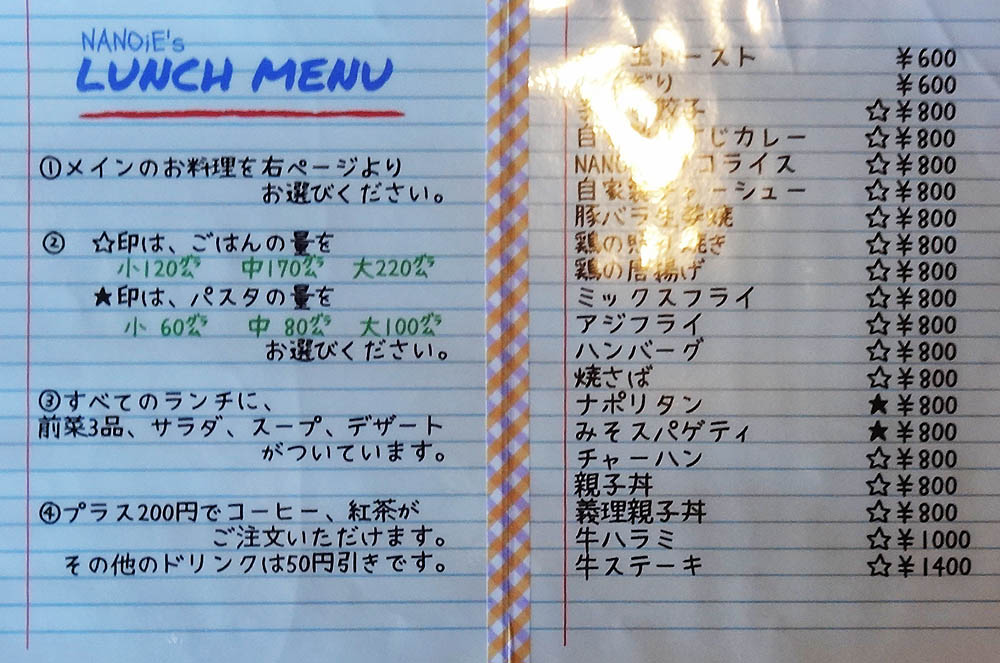 NANOiE's
LUNCH MENU
①メインのお料理を右ページより
お選びください。
② ☆印は、ごはんの量を
小120㌘ 中170㌘ 大220㌘
★印は、パスタの量を
小 60㌘ 中 80㌘ 大100㌘
お選びください。
③すべてのランチに、
前菜3品、サラダ、スープ、デザート
がついています。
④プラス200円でコーヒー、紅茶が
ご注文いただけます。
その他のドリンクは50円引きです。
玉トースト ¥600
り ¥600
餃子 ☆¥800
自 じカレー ☆¥800
NANO コライス ☆¥800
自家製チャーシュー ☆¥800
豚バラ生姜焼 ☆¥800
鶏の照り焼き ☆¥800
鶏の唐揚げ ☆¥800
ミックスフライ ☆¥800
アジフライ ☆¥800
ハンバーグ ☆¥800
焼さば ☆¥800
ナポリタン ★¥800
みそスパゲティ ★¥800
チャーハン ☆¥800
親子丼 ☆¥800
義理親子丼 ☆¥800
牛ハラミ ☆¥1000
牛ステーキ ☆¥1400